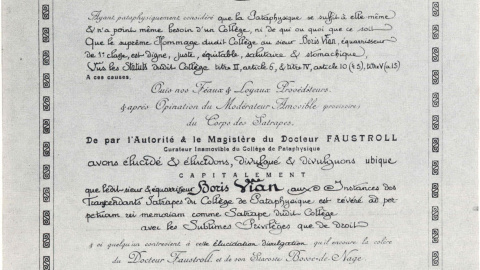 Ayant pataphysiquement considéré que la Pataphysique se suffit à elle même
& n'a point même besoin d'un Collège, ni de qui ou quoi que ce soit
Que le suprême Hommage dudit Collège au sieur Boris Vian, équarrisseur
de 1re classe, est digne, juste, équitable, salutaire & stomachique
Vus les Statuts dudit Collège titre II, article 5, & titre IV, article 10
A ces causes,
Ouïs nos Féaux & Loyaux Provéditeurs
& après Opination du Modérateur Amovible
du Corps des Satrapes,
De par l'Autorité & le Magistère du Docteur FAUSTROLL
Curateur Inamovible du Collège de Pataphysique
avons élucidé & élucidons, divulgué & divulguons ubique
CAPITALEMENT
que ledit sieur & équarrisseur Boris Vian, aux Instances des
Transcendants Satrapes du Collège de Pataphysique est révéré ad per
petuam rei memoriam comme Satrape dudit Collège
avec les Sublimes Privilèges que de droit
& si quelqu'un contrevient à cette élucidation divulgation qu'il encoure la colère
du Docteur Faustroll, et de son Bosse-de-Nage